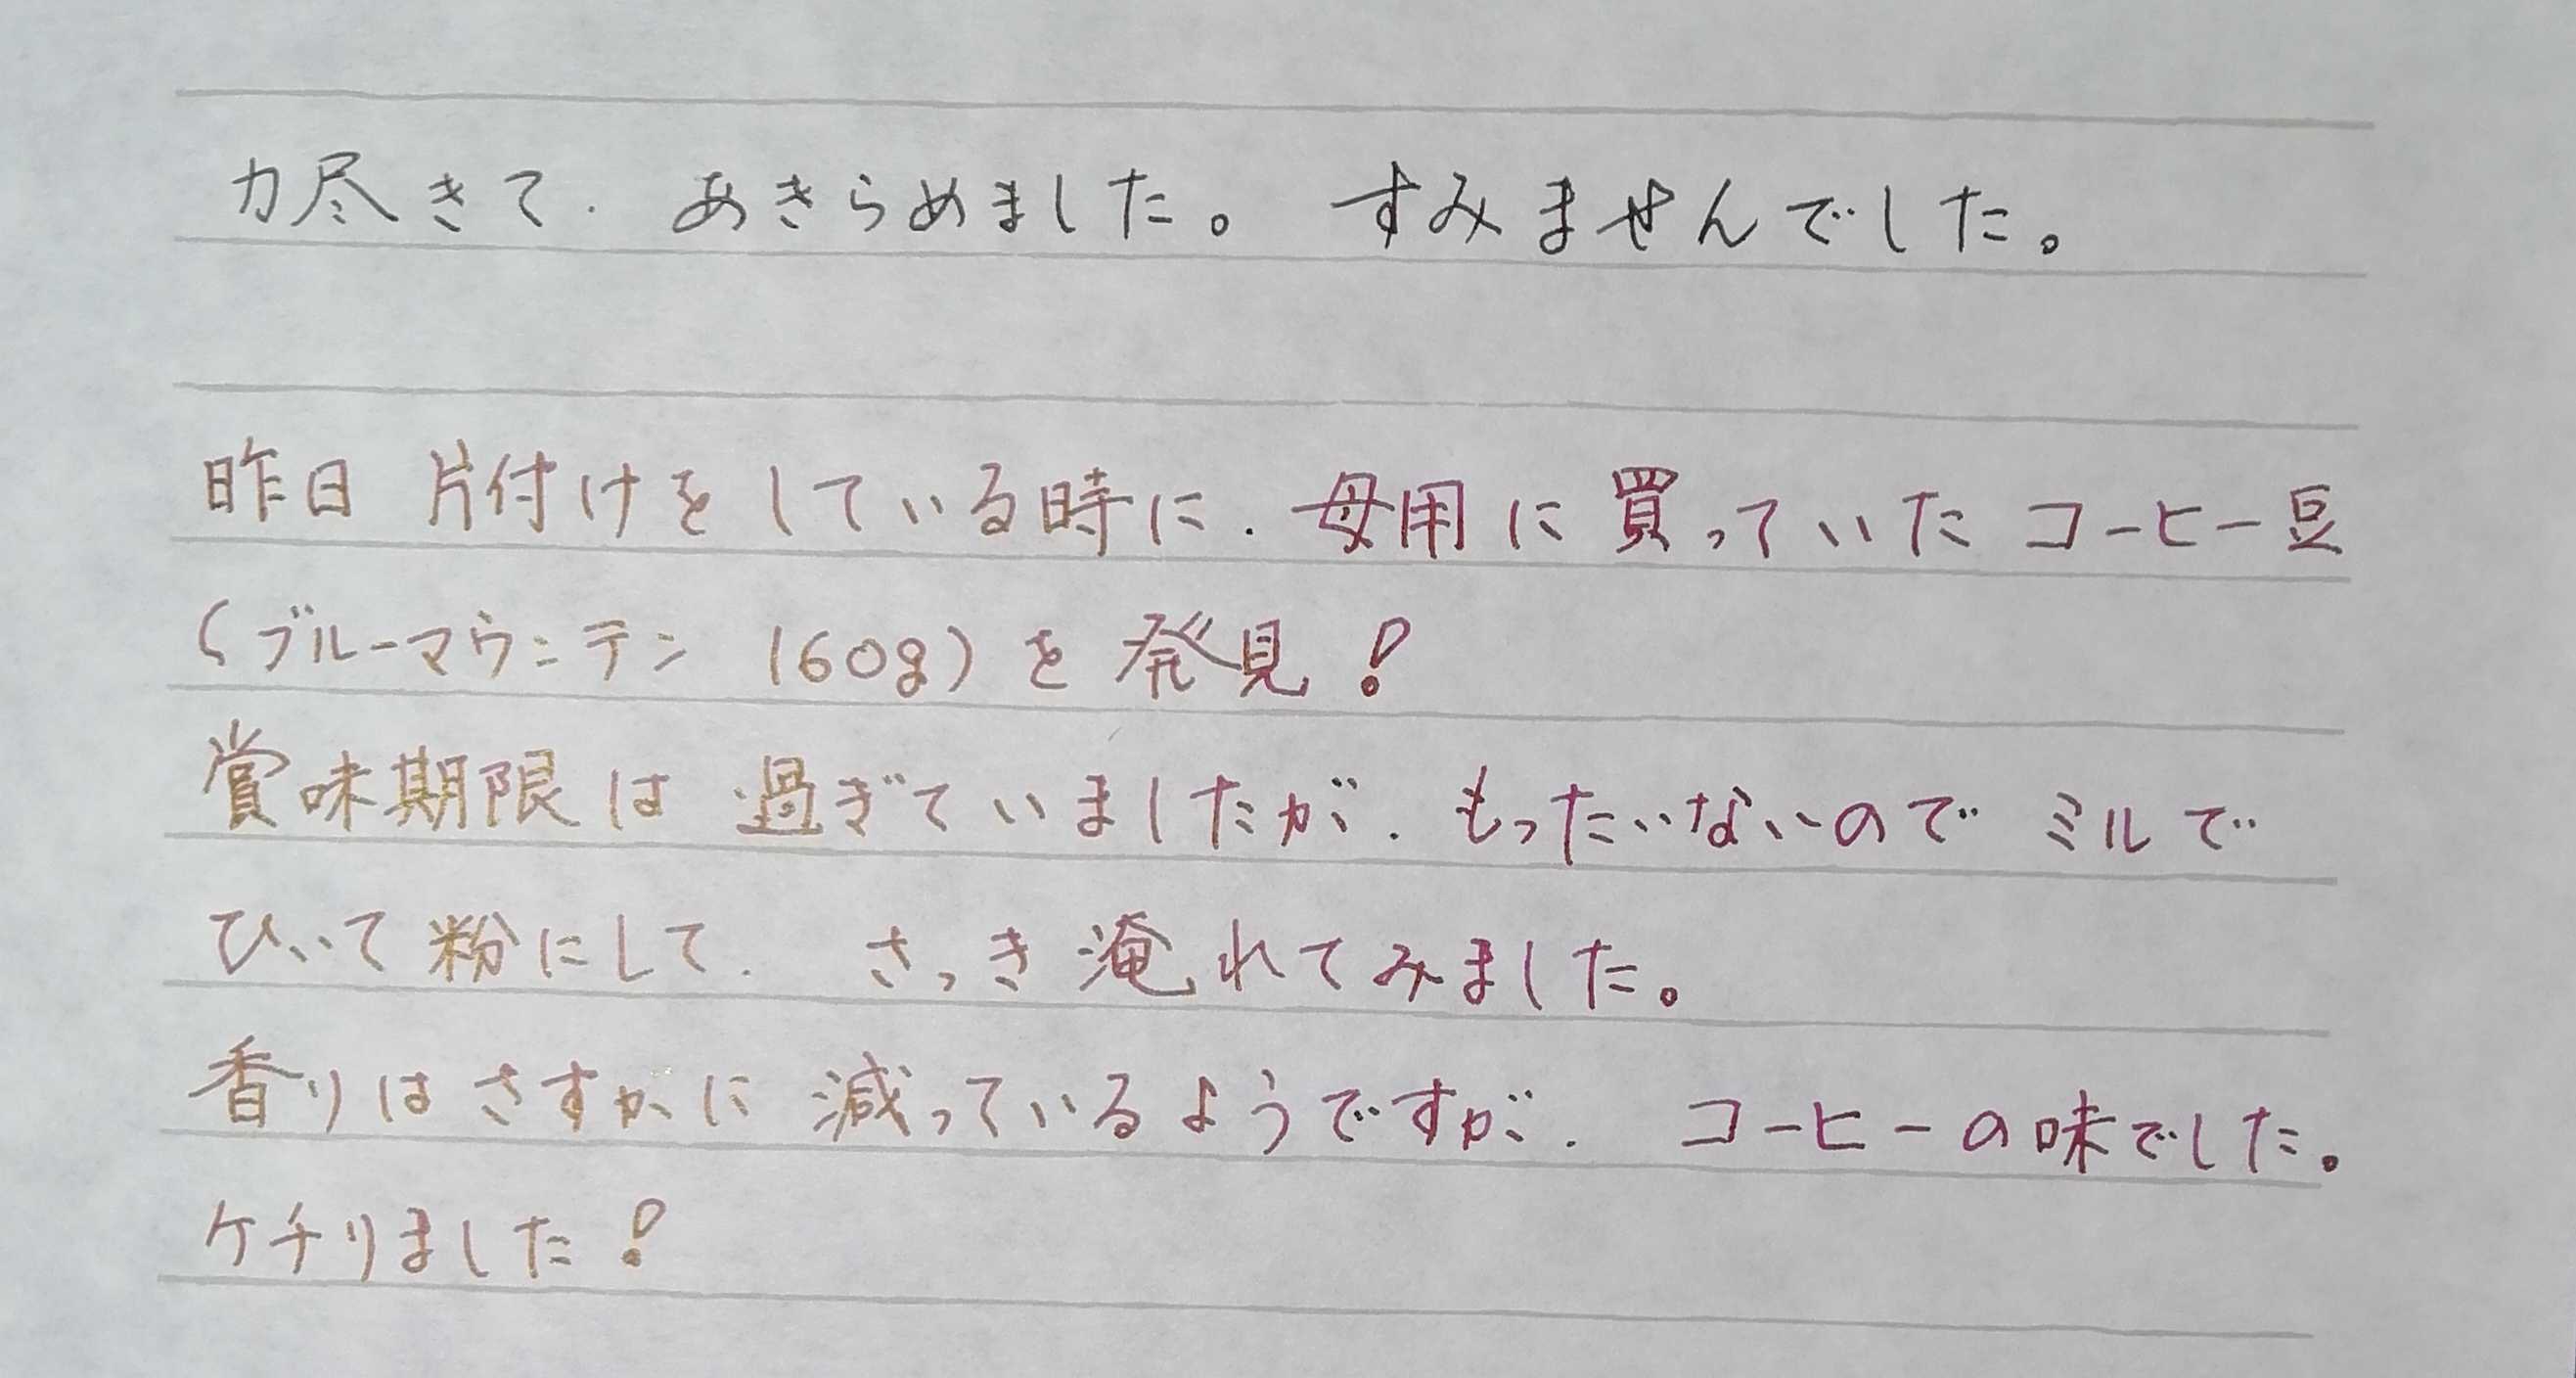 力尽きて、あきらめました。 すみませんでした。
昨日 片付けをしている時に、母用に買っていたコーヒー豆
(ブルーマウンテン 160g)を発見!
賞味期限は過ぎていましたが、もったいないので ミルで
ひいて粉にして、 さっき淹れてみました。
香りはさすがに減っているようですが、 コーヒーの味でした。
ケチりました!